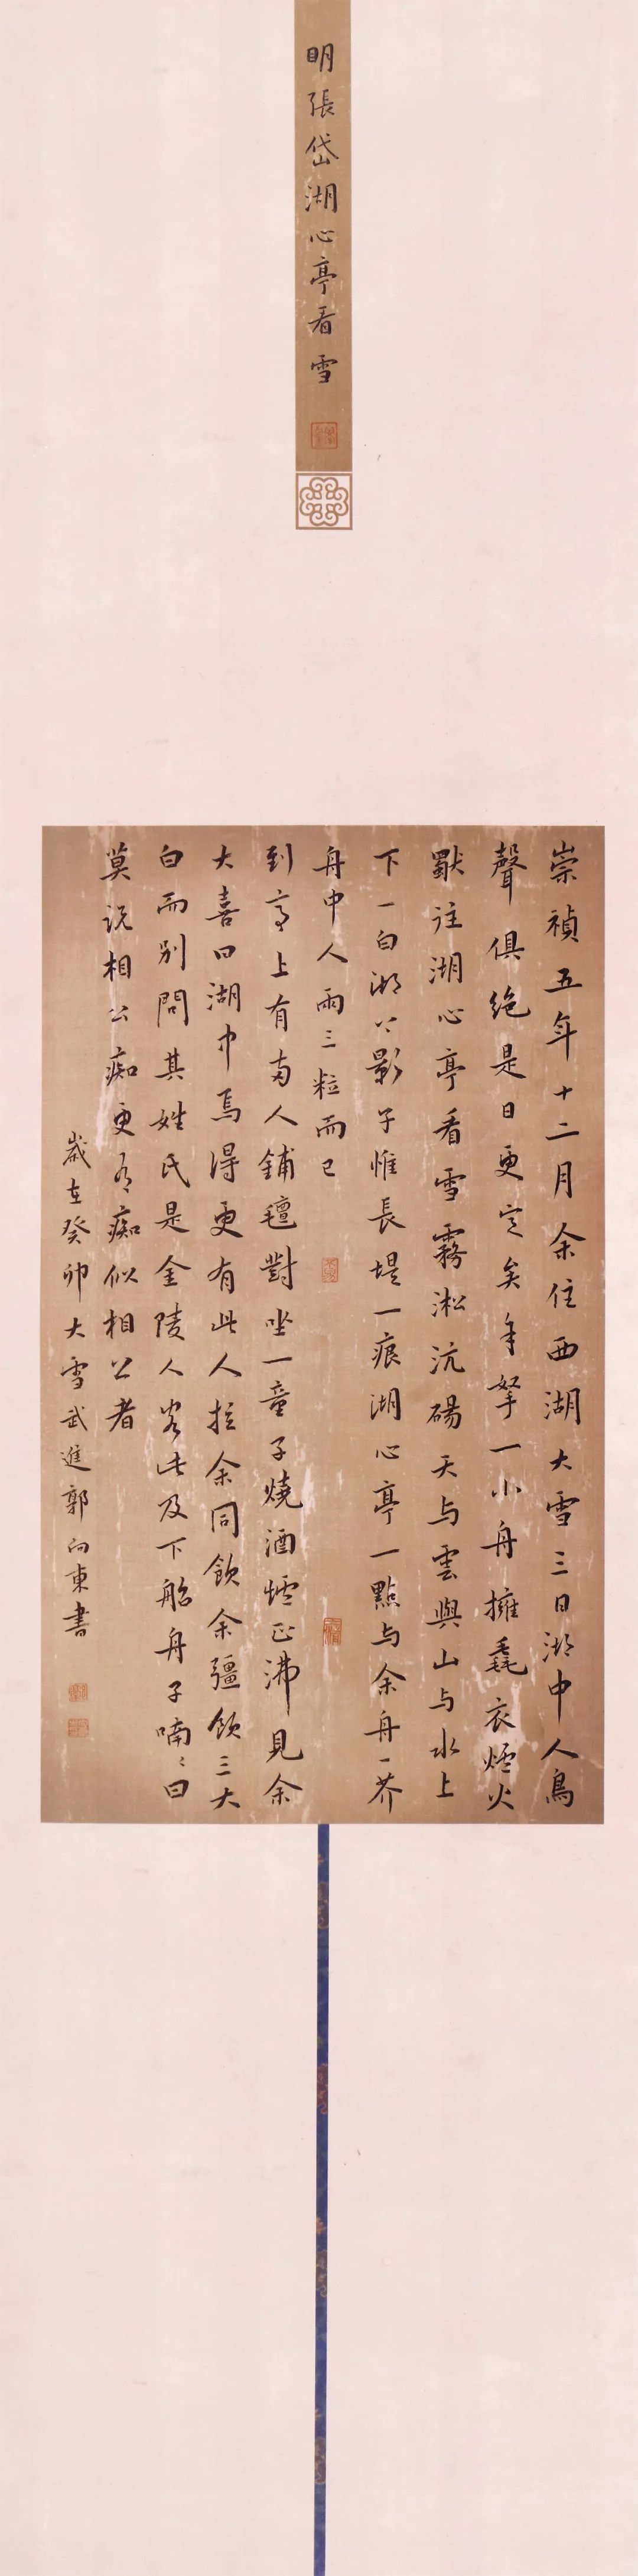 明張岱湖心亭看雪
崇禎五年十二月余住西湖大雪三日湖中人鳥
聲俱絶是日更定矣余拏一小舟擁毳衣爐火
獸往湖心亭看雪霧淞沆碭天与雲與山与水上
下一白湖上影子惟長堤一痕湖心亭一點与余舟一芥
舟中人兩三粒而已
到亭上有两人鋪氊對坐一童子燒酒爐正沸見余
大喜曰湖中焉得更有此人拉余同飲余彊飲三大
白而别問其姓氏是金陵人客此及下船舟子喃〻曰
莫説相公痴更有痴似相公者
歲在癸卯大雪武進郭向東書